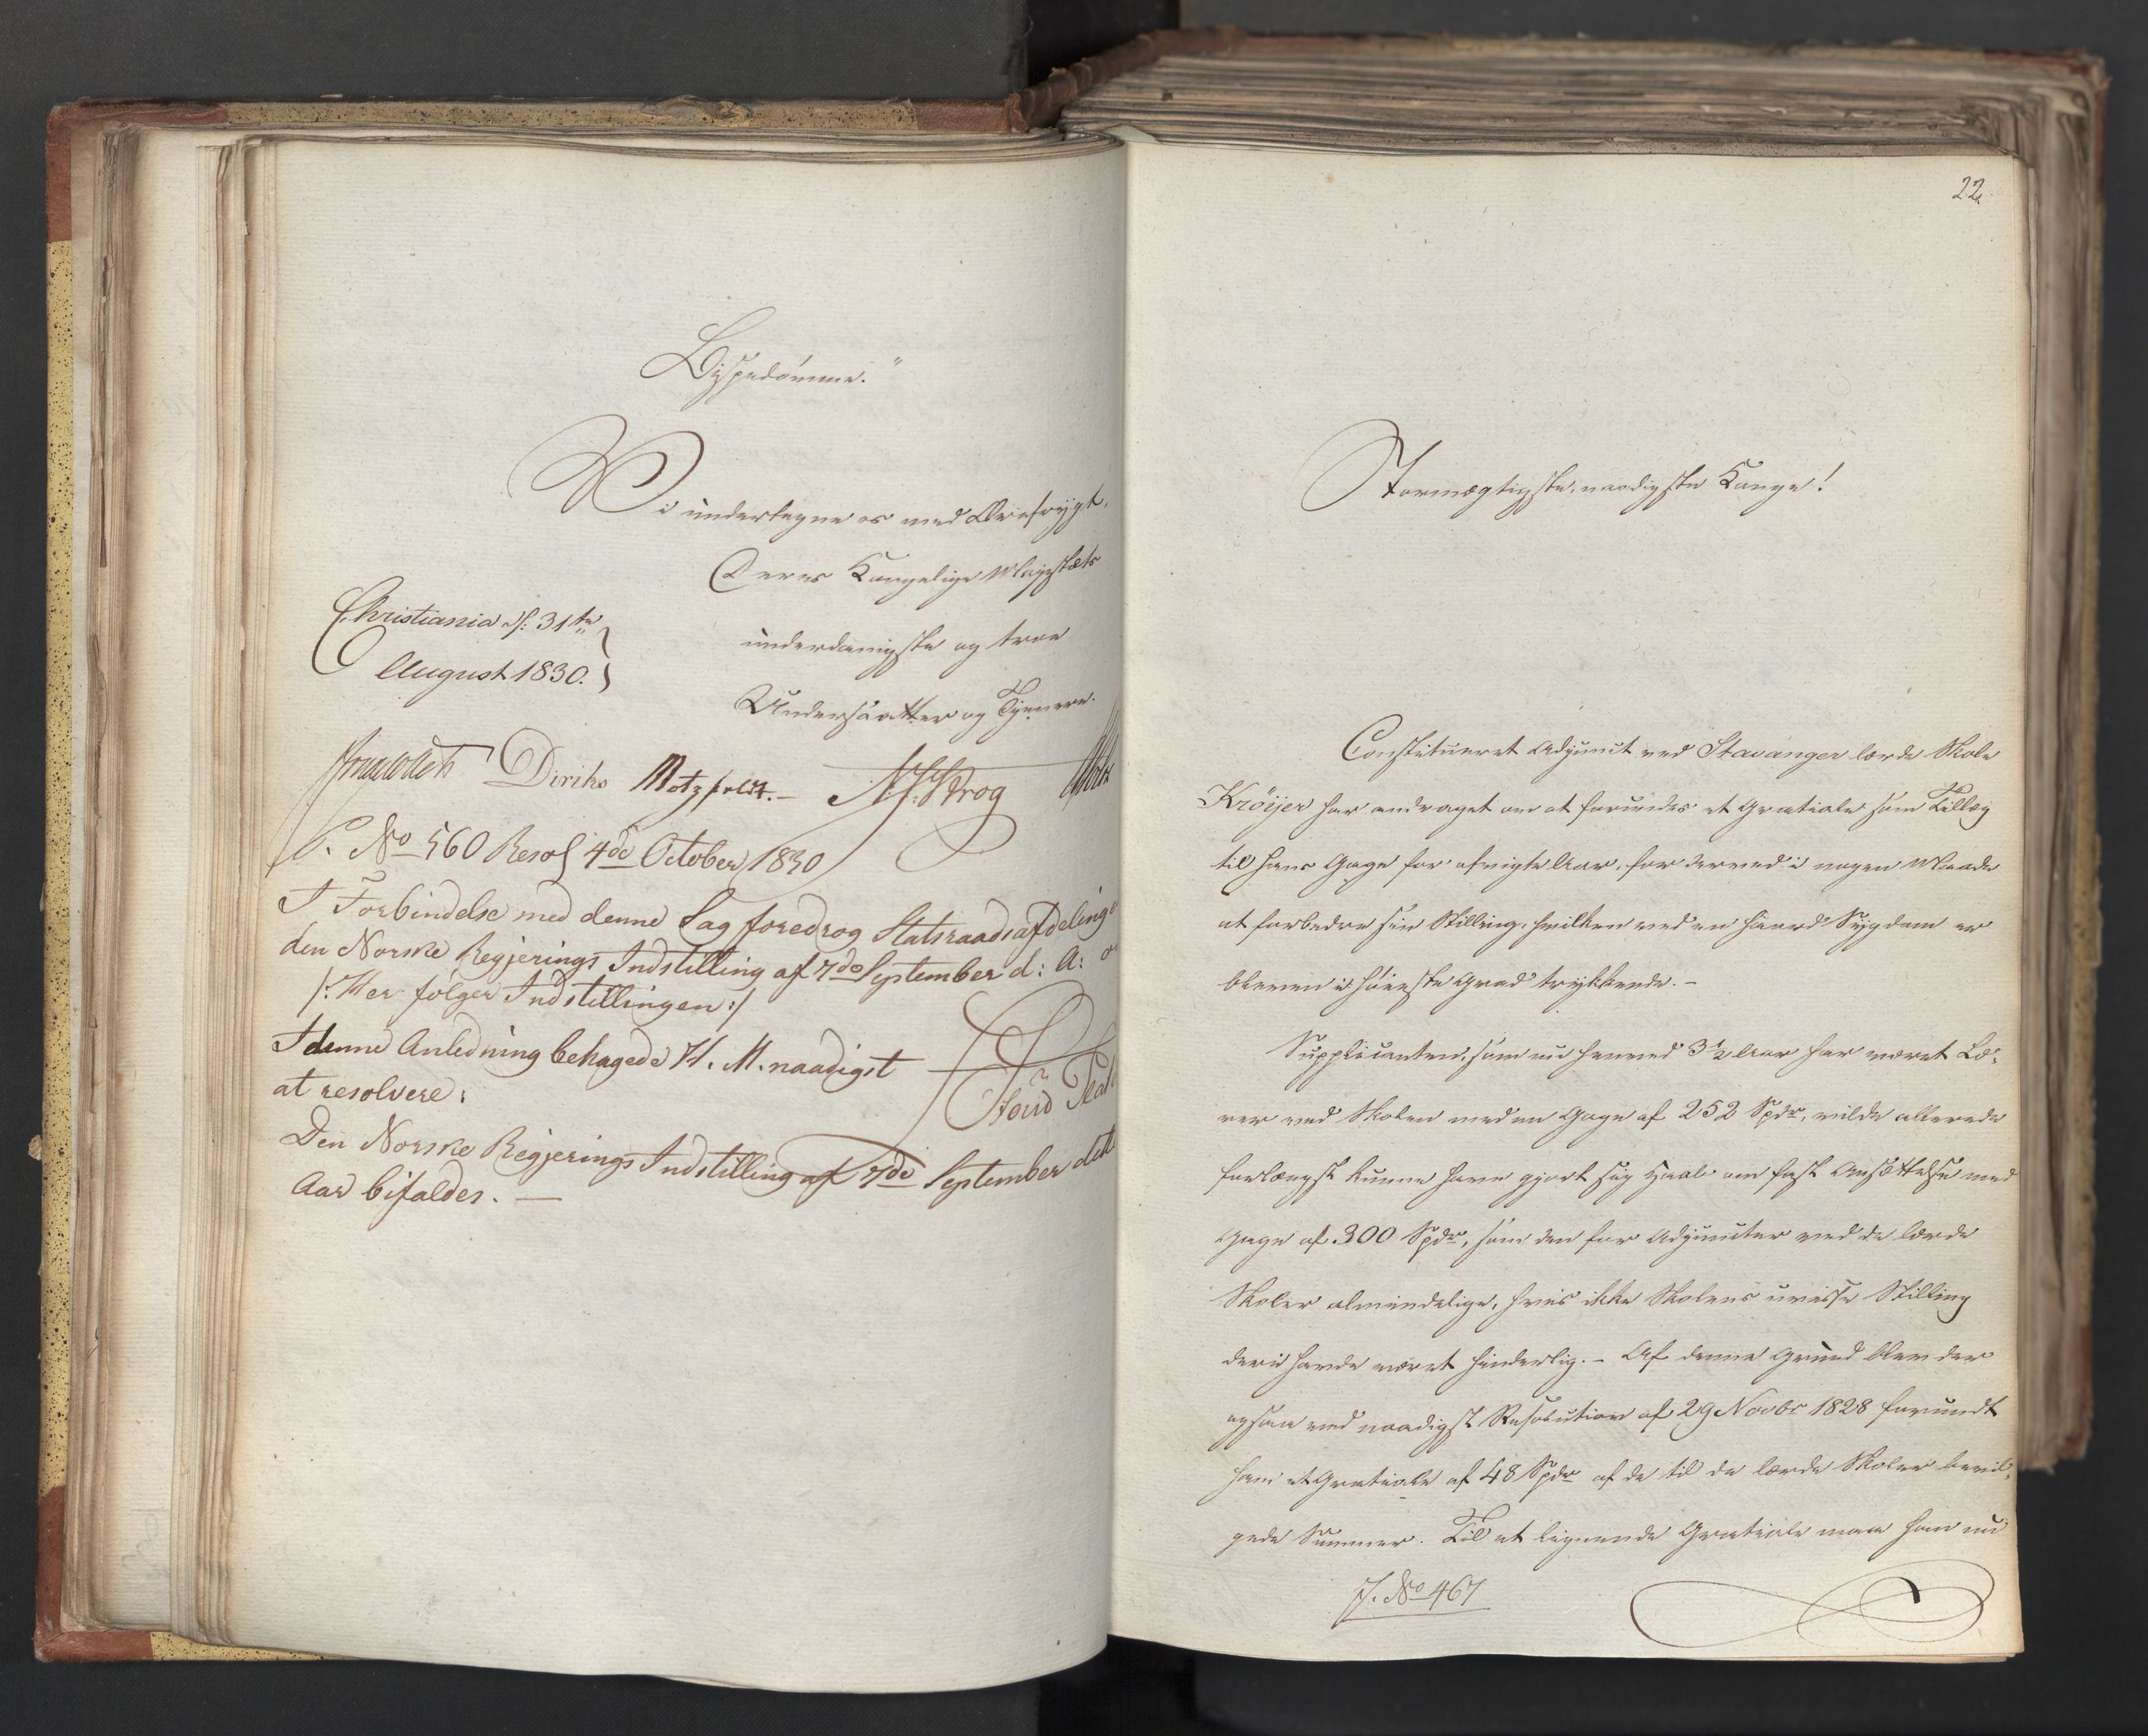 Bispedømme."
Vi undertegne os med Ærefrygt,
Deres Kongelige Majestæts
Christiania d: 31te
underdanigste og troe
August 1830.
Undersaatter og Tjenere.
Diriks Motzfeldt.– Krog
P. No 560 Resol 4de October 1830
I Forbindelse med denne Sag foredrog Statsraadsafdelinge
den Norske Regjerings Indstilling af 7de September d: A:
/: Her følger Indstillingen :/
I denne Anledning behagede H. M. naadigst
at resolvere:
Den Norske Regjerings Indstilling af 7de September dette
Aar bifaldes. —
22.
Stormægtigste, naadigste Konge!
Constitueret Adjunct ved Stavanger lærde Skole
Kröijer har andraget om at forundes et Gratiale som Tillæg
til hans Gage for afvigte Aar, for derved i nogen Maade
at forbedre sin Stilling, hvilken ved en haard Sygdom er
bleven i høieste Grad trykkende. –
Supplicanten, som nu henved 3½ Aar har været Læ-
rer ved Skolen med en Gage af 252 Spdr, vilde allerede
forlængst kunne have gjort sig Haab om fast Ansættelse med
Gage af 300 Spdr, som den for Adjuncter ved de lærde
Skoler almindelige, hvis ikke Skolens uvisse Stilling
deri havde været hinderlig. – Af denne Grund blev der
ogsaa ved naadigst Resolution af 29 Novbr 1828 forundt
ham et Gratiale af 48 Spdr af de til de lærde Skoler bevil-
gede Summer. Til et lignende Gratiale maa han nu
J. No 467